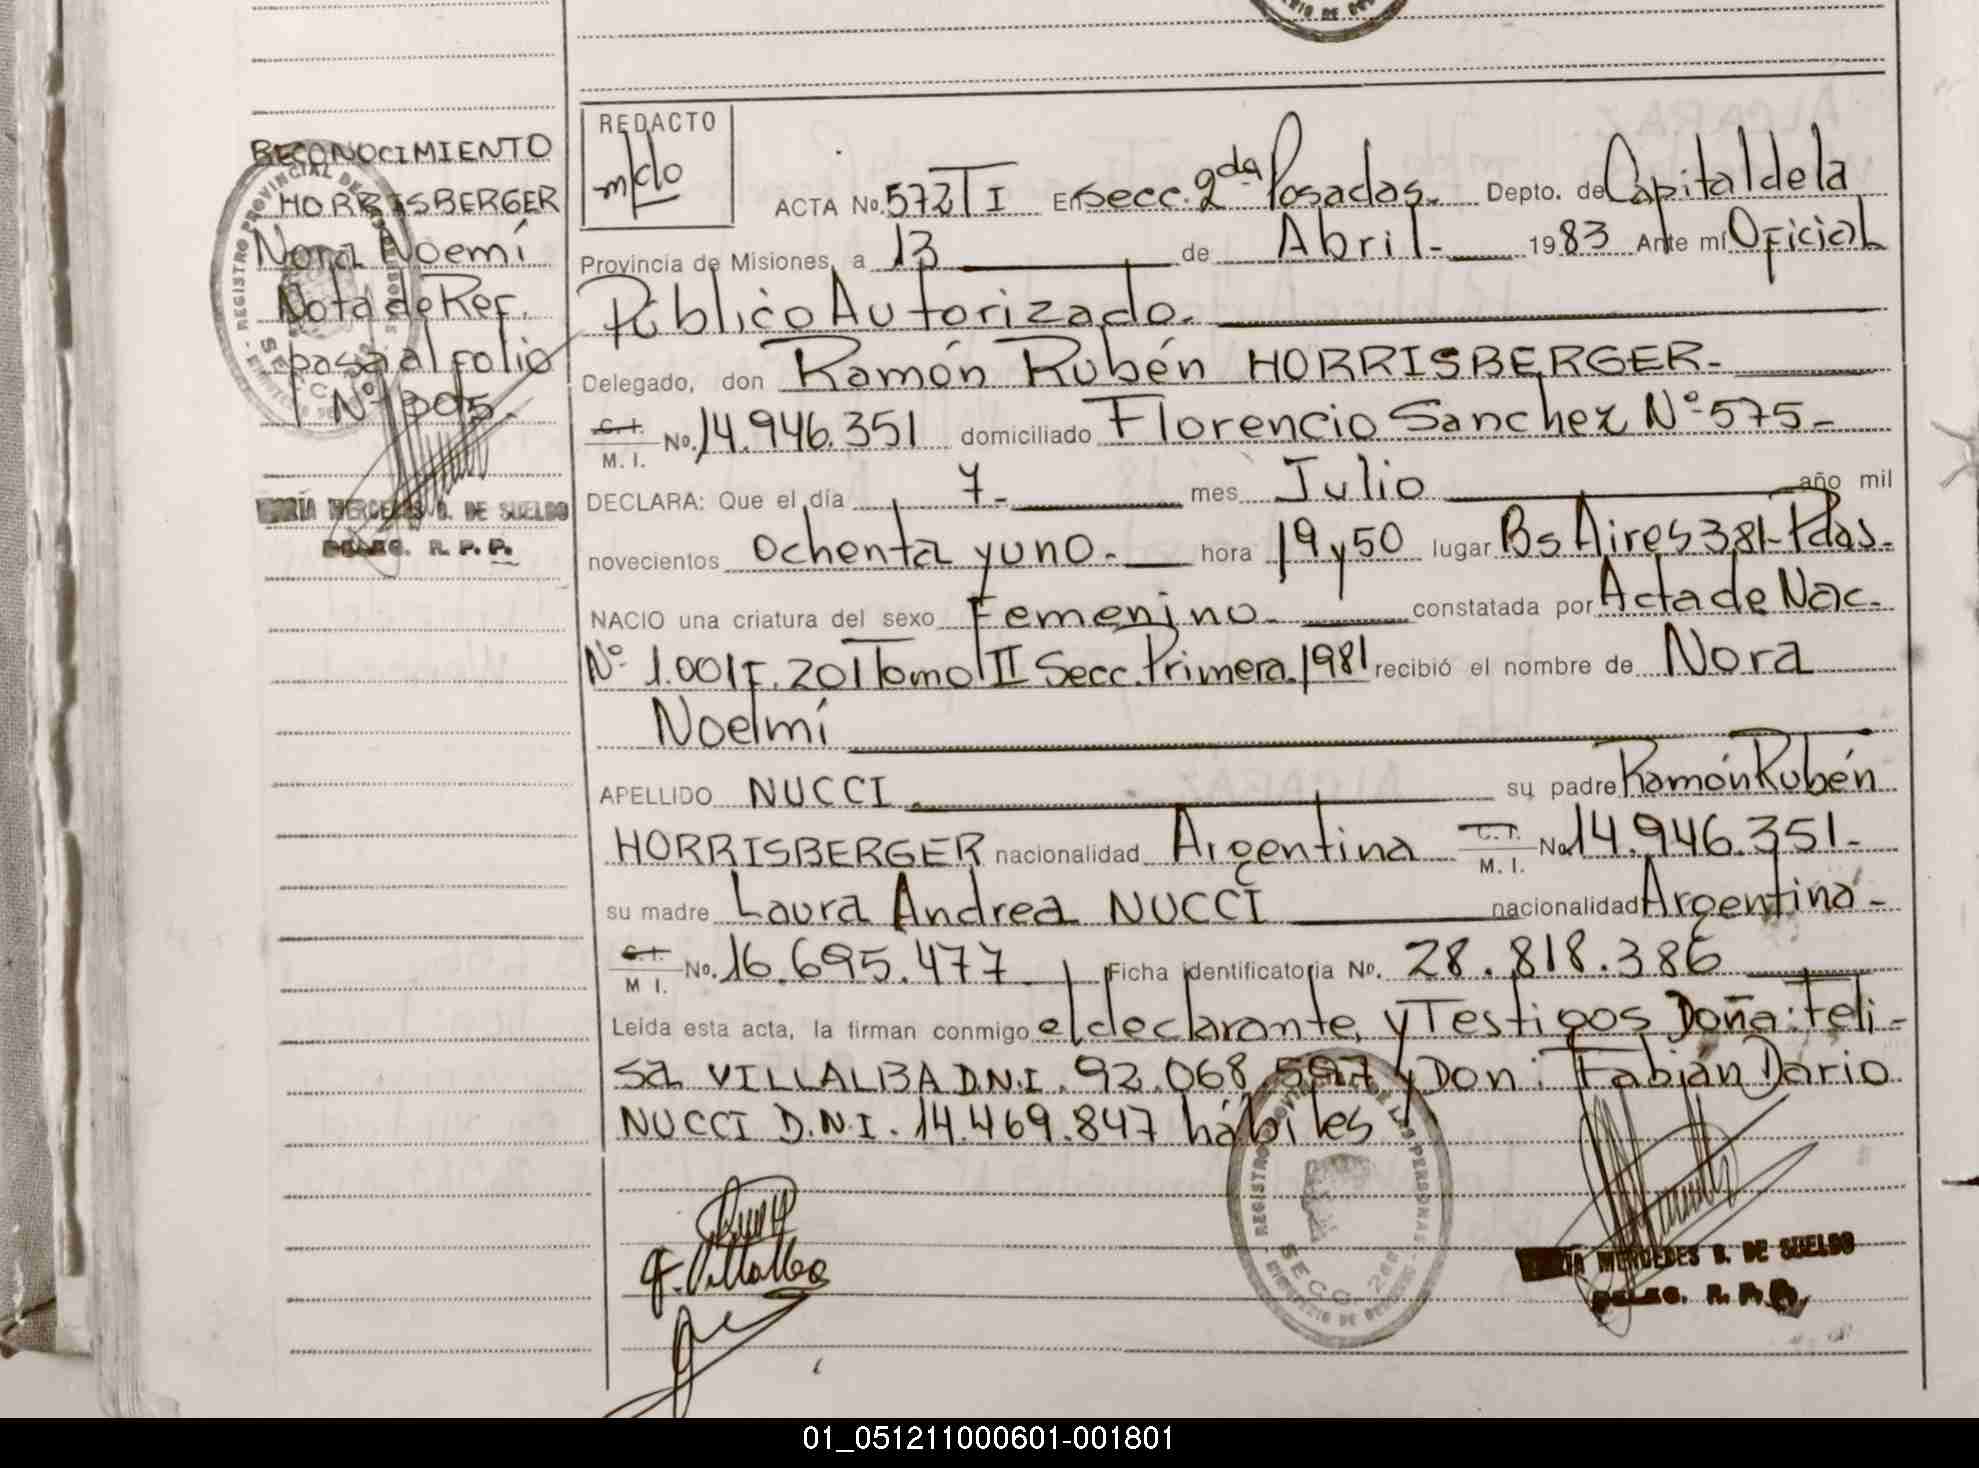 RECONOCIMIENTO
HORRISBERGER
Nora Noemí
Nota de Ref.
pasa al folio
Nº 305.
MARÍA MERCEDES B. DE SUELDO
DELEG. R. P. P.
REDACTO
ACTA No. 572 T I En Secc. 2da Posadas. Depto. de Capital de la
Provincia de Misiones, a 13 de Abril. 1983 Ante mí Oficial
Público Autorizado.
Delegado, don Ramón Rubén HORRISBERGER.
C. I. M. I. No. 14.946.351 domiciliado Florencio Sanchez Nº 575-
DECLARA: Que el día 7- mes Julio año mil
novecientos ochenta y uno. hora 19 y 50 lugar Bs Aires 381- Pdas.
NACIO una criatura del sexo Femenino. constatada por Acta de Nac.
Nº 1.001 F. 201 Tomo II Secc. Primera. 1981 recibió el nombre de Nora
Noelmí
APELLIDO NUCCI. su padre Ramón Rubén
HORRISBERGER nacionalidad Argentina C. I. M. I. No. 14.946.351-
su madre Laura Andrea NUCCI nacionalidad Argentina-
C. I. M I. No. 16.695.477 Ficha identificatoria No. 28.818.386
Leída esta acta, la firman conmigo el declarante, y Testigos Doña: Feli-
sa VILLALBA D.N.I. 92.068.597 y Don: Fabián Dario
NUCCI D.N.I. 14.469.847 hábiles
F. Villalba
REGISTRO PROVINCIAL DE LAS PERSONAS
SECC. 2da
MARÍA MERCEDES B. DE SUELDO
DELEG. R. P. P.
01_051211000601-001801